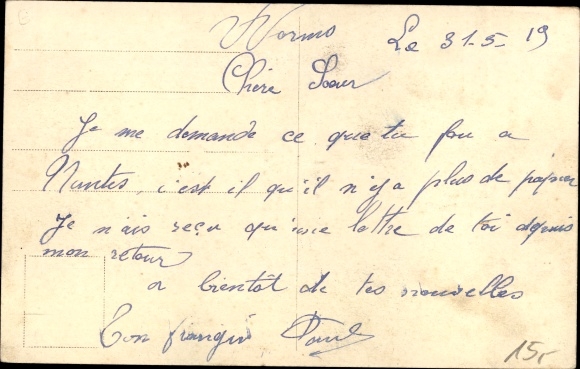 Worms Le 31-5-19
Chère Soeur
Je me demande ce que tu fou a
Nantes, c'est il qu'il n'y a plus de papier
Je n'ais reçu qu'une lettre de toi depuis
mon retour
a bientôt de tes nouvelles
Ton frangin Paul
15,-